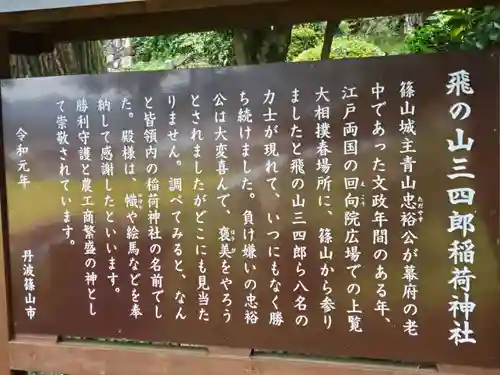 飛の山三四郎稲荷神社
篠山城主青山忠裕公が幕府の老
ただやす
中であった文政年間のある年、
江戸両国の回向院広場での上覧
えこう
大相撲春場所に、篠山から参り
ましたと飛の山三四郎ら八名の
力士が現れて、いつにもなく勝
ち続けました。負け嫌いの忠裕
公は大変喜んで、褒美をやろう
ほうび
とされましたがどこにも見当た
りません。調べてみると、なん
と皆領内の稲荷神社の名前でし
た。殿様は、幟や絵馬などを奉
納して感謝したといいます。
勝利守護と農工商繁盛の神とし
て崇敬されています。
令和元年
丹波篠山市